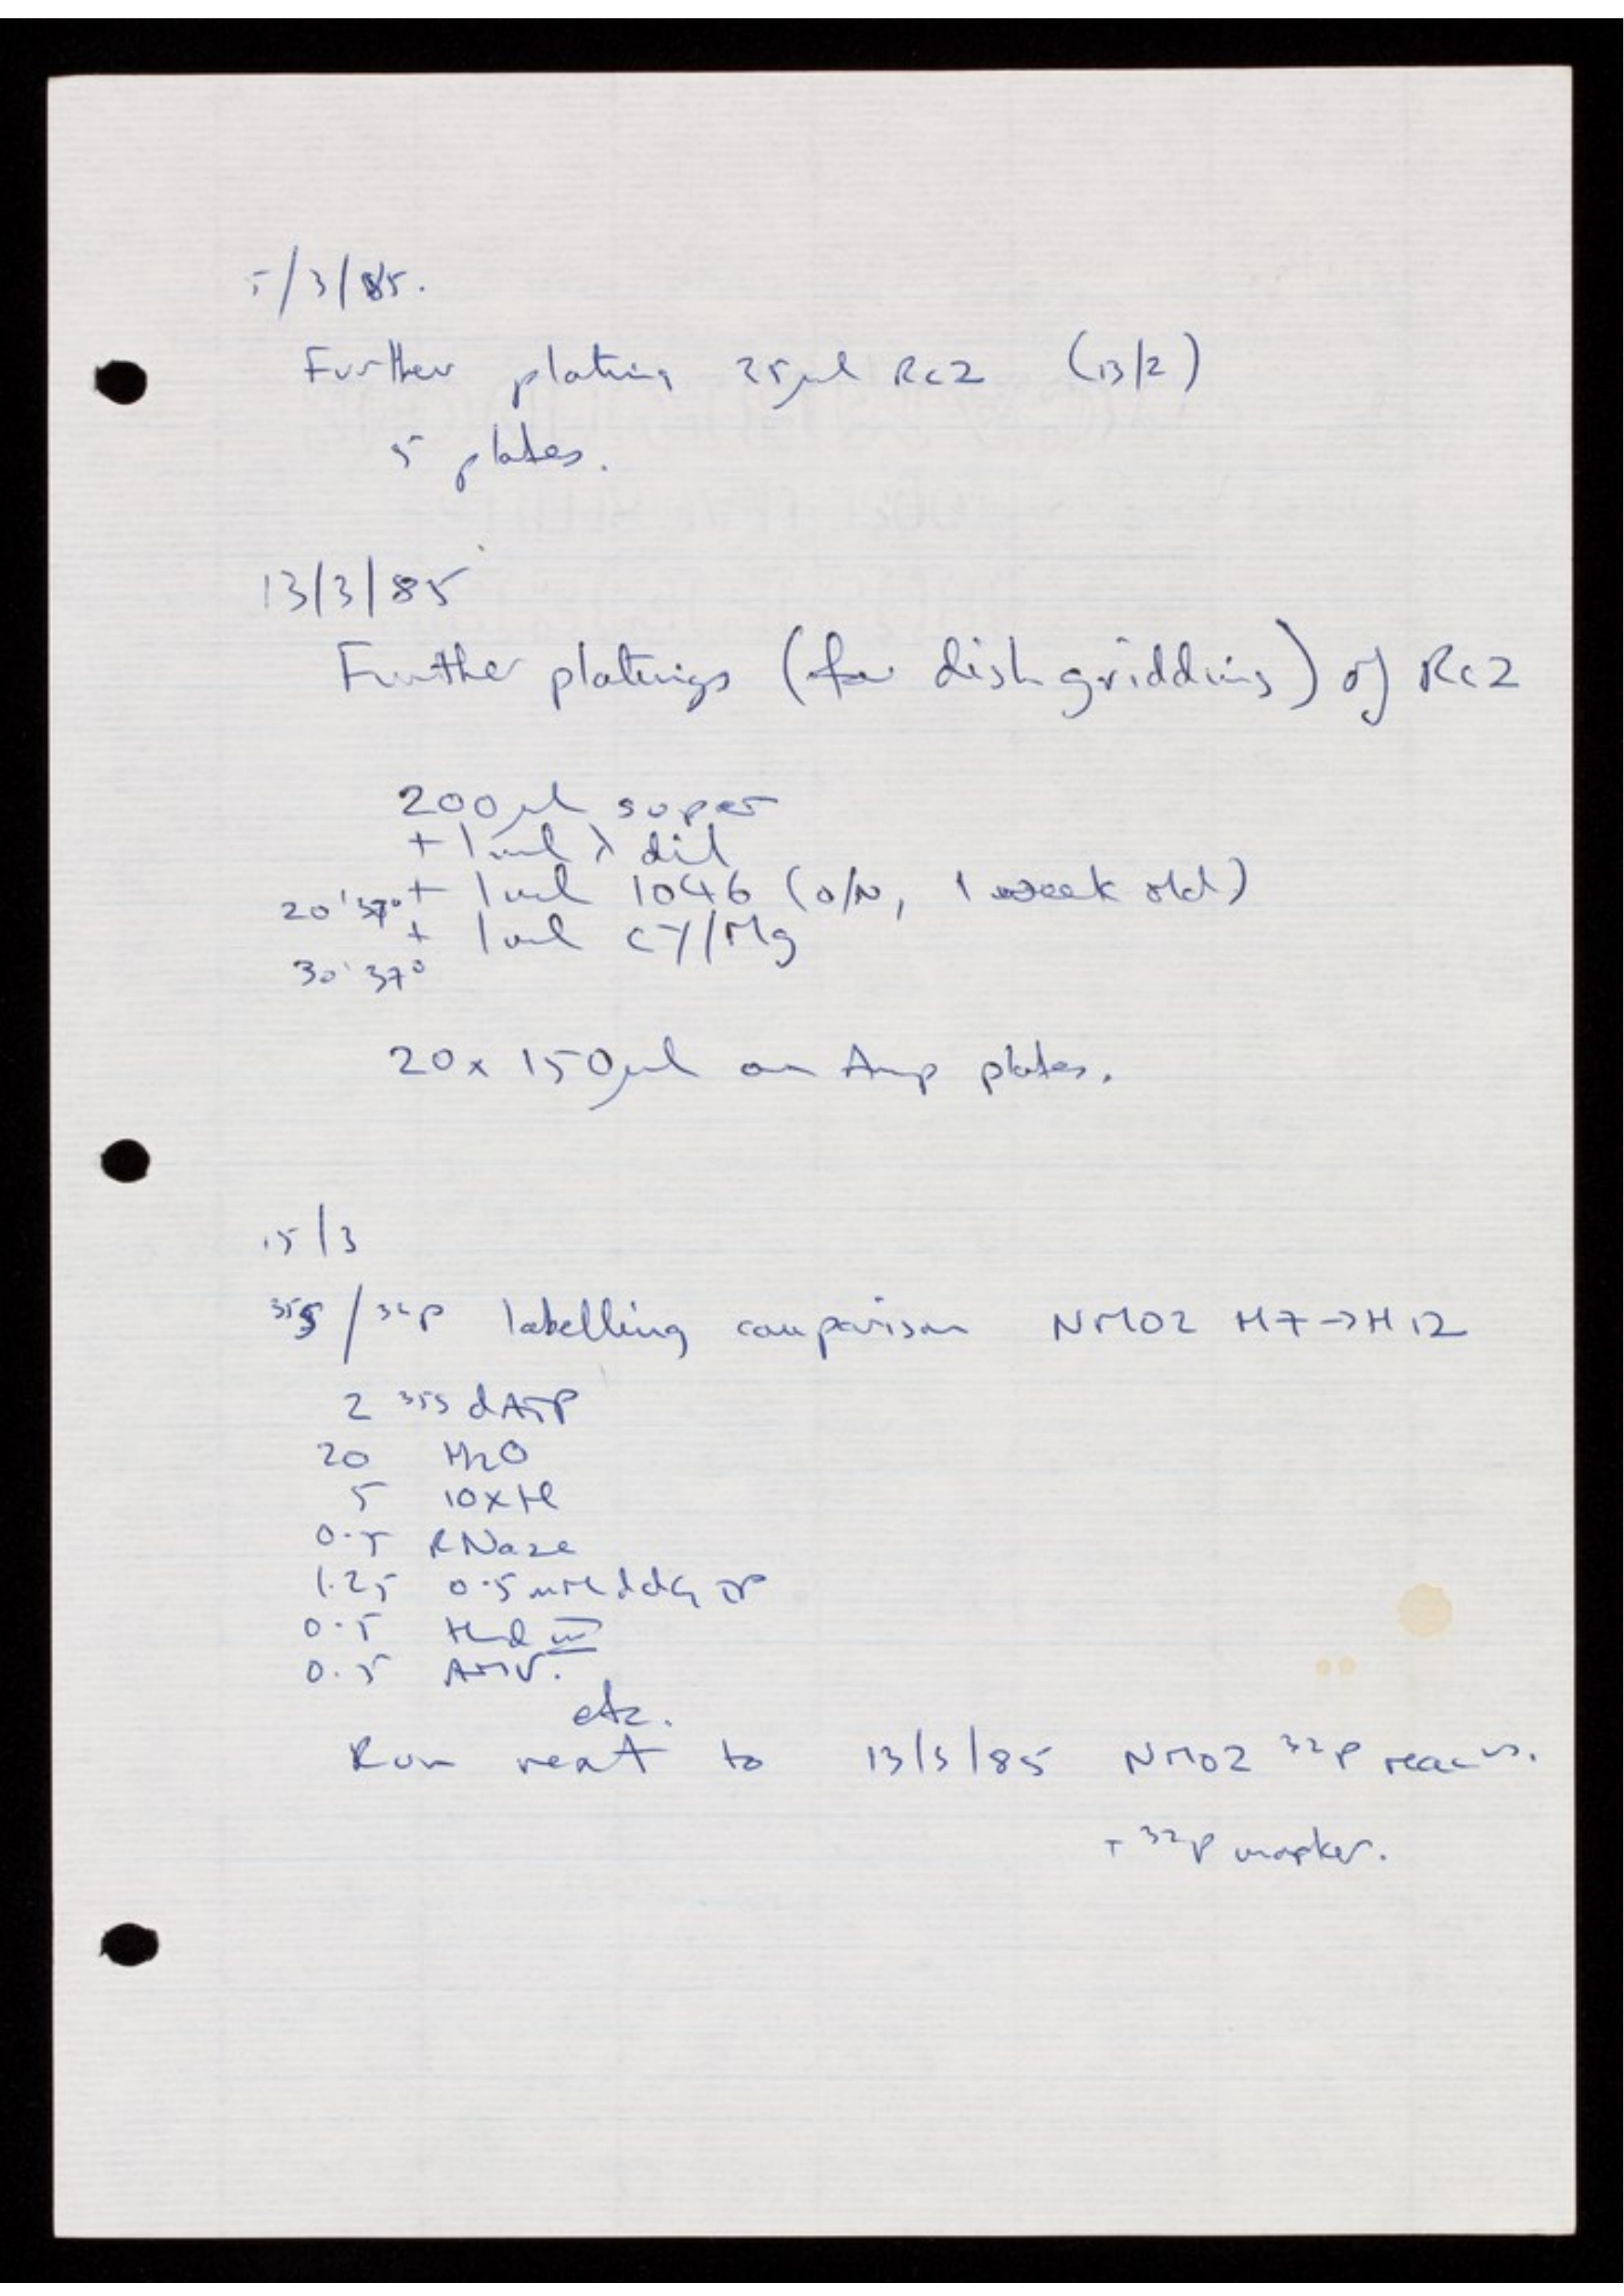 5/3/85.
Further plating 25µl Rc2 (13/2)
5 plates.
13/3/85
Further platings (for dish gridding) of Rc2
200µl super
+ 1ml λ dil
20' 37° + 1ml 1046 (o/N, 1 week old)
+ 1ml CY/Mg
30' 37°
20 x 150µl on Amp plates.
15/3
35S / 32P labelling comparison NM02 H7->H12
2 35S dATP
20 H2O
5 10xM
0.5 RNase
1.25 0.5mM ddGTP
0.5 Hind III
0.5 AMV.
etc.
Run next to 13/3/85 NM02 32P reacns.
+ 32P marker.